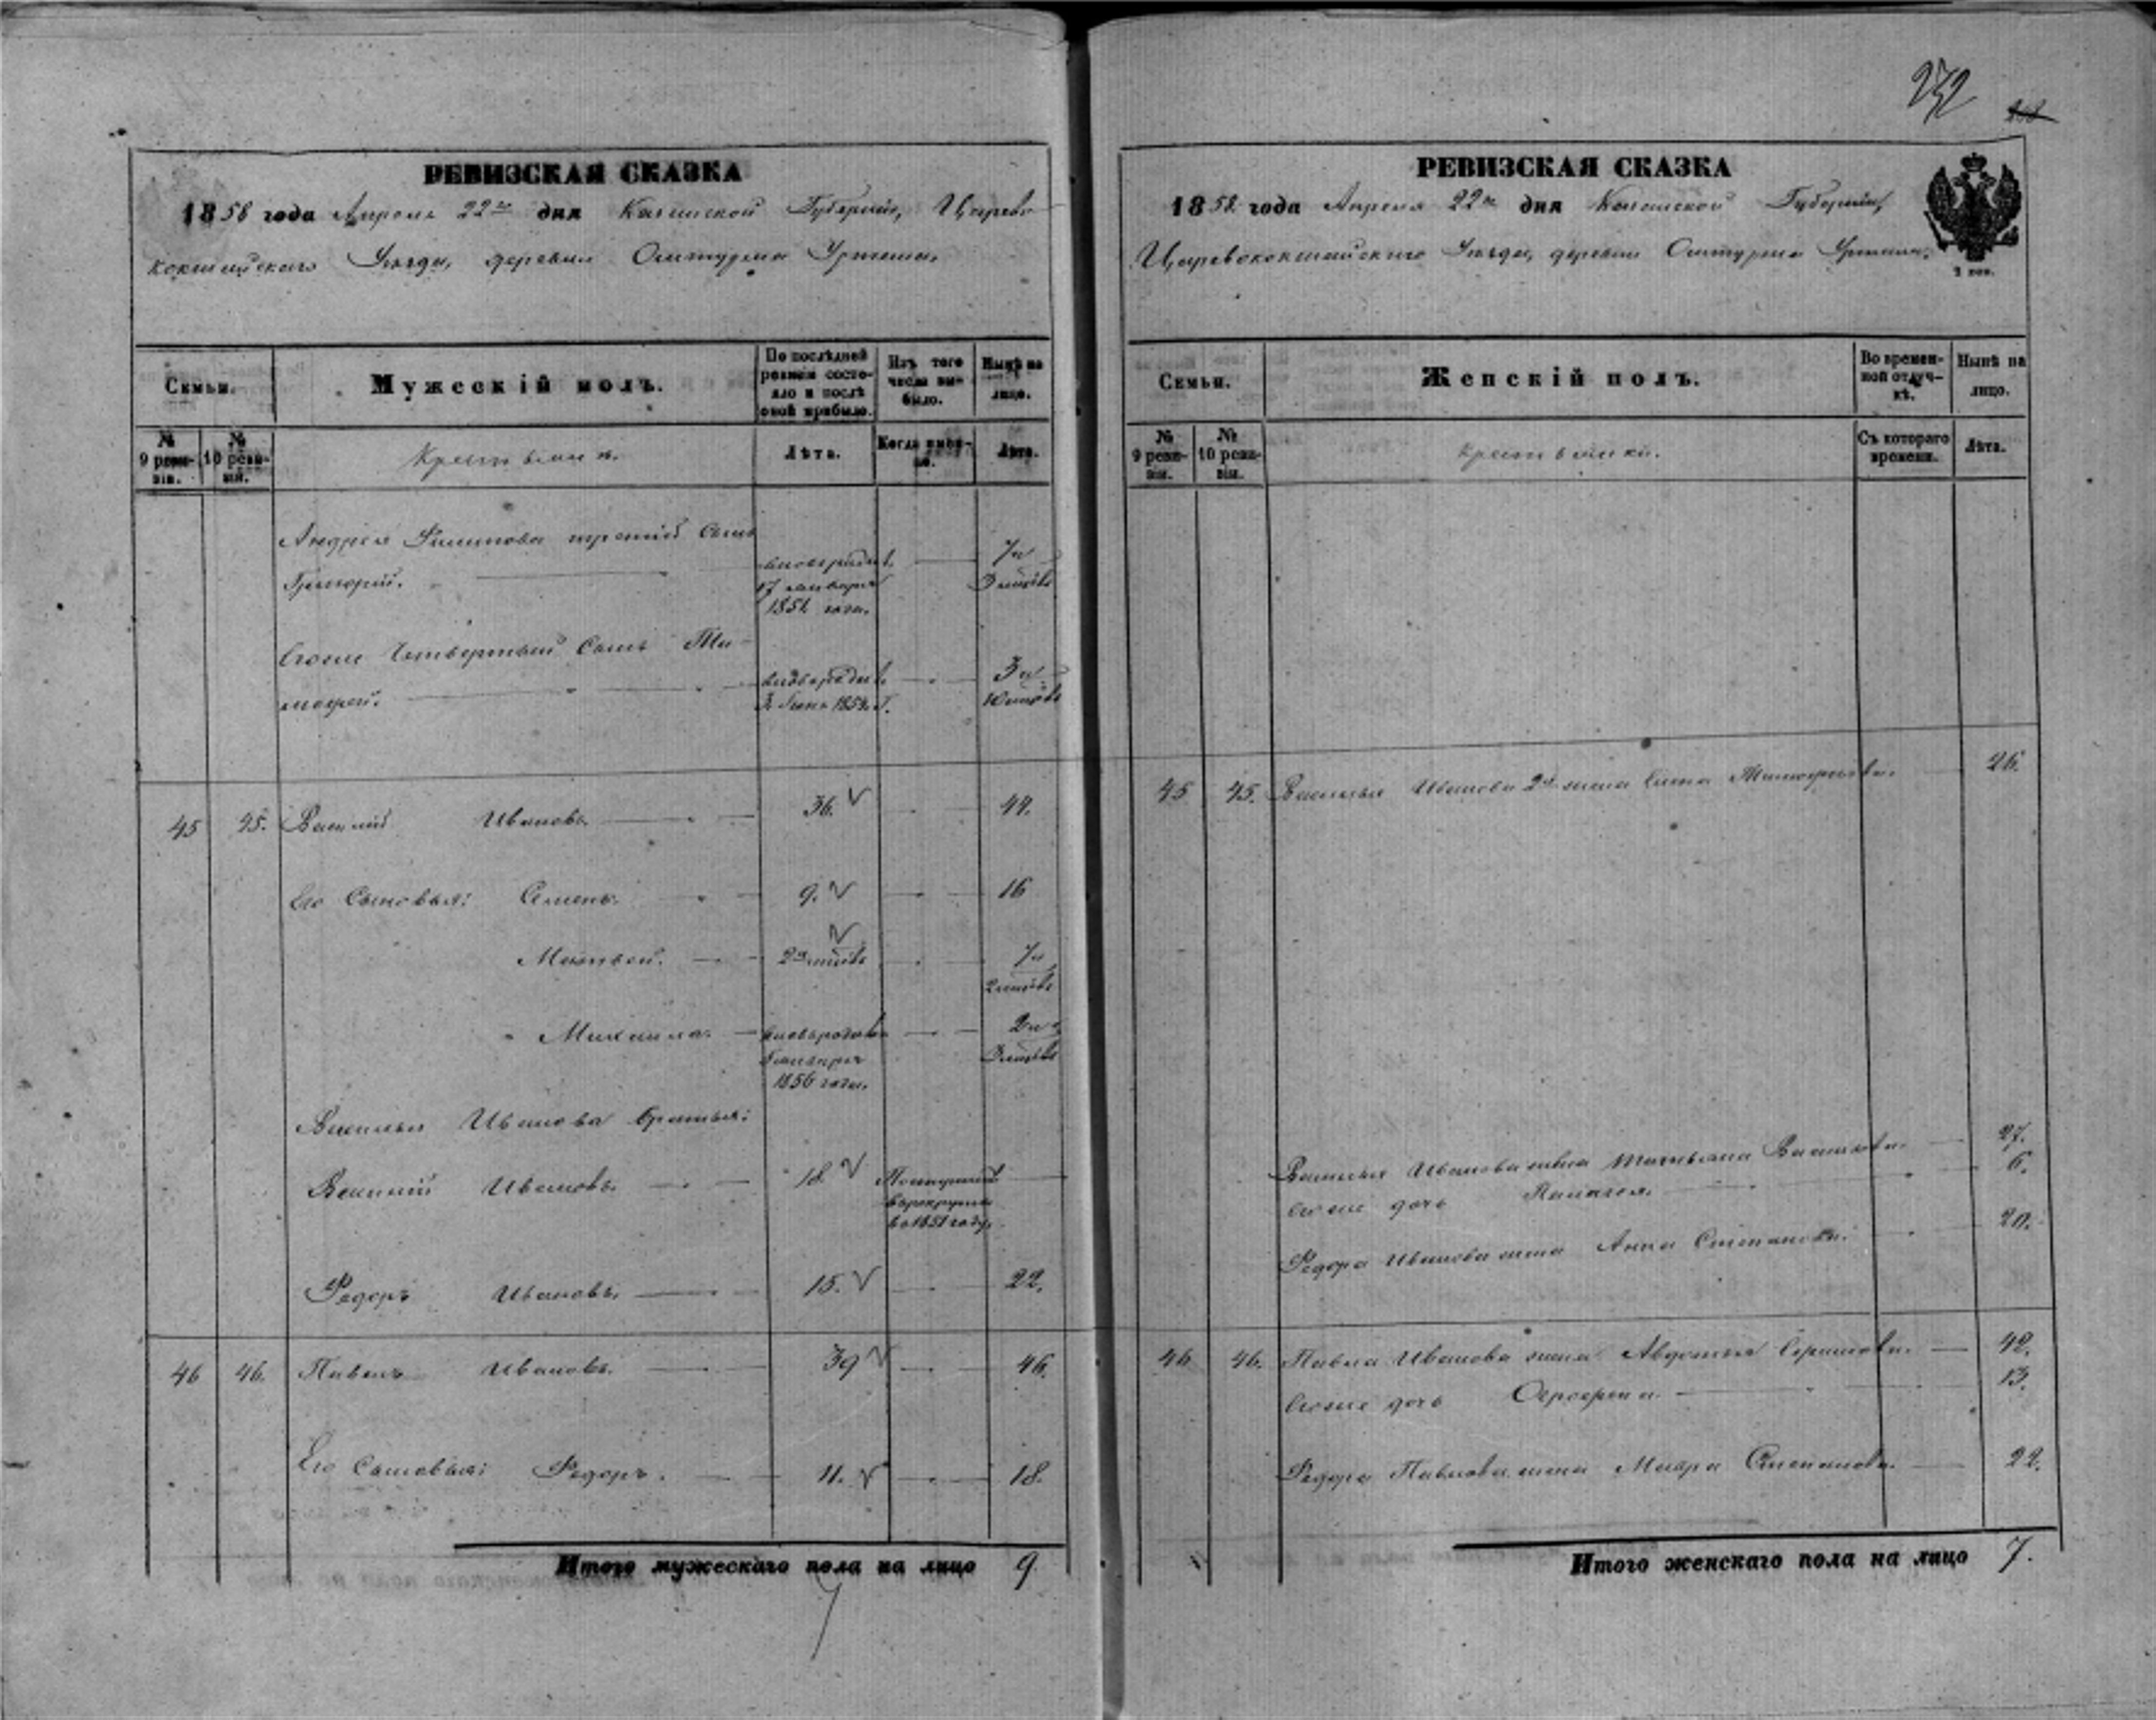 272
РЕВИЗСКАЯ СКАЗКА
1858 года Апреля 22го дня Казанской Губернии, Царево-
кокшайскаго Уезда, деревни
Семьи.
Мужескій полъ.
По послѣдней ревизіи состояло и послѣ оной прибыло.
Изъ того числа выбыло.
Нынѣ на лицо.
№ 9 ревизіи.
№ 10 ревизіи.
Крестьяне.
Лѣта.
Когда именно.
Лѣта.
Андрея Филипова третий сынъ
Григорий.
новорожден.
17 января
1851 года.
7 и
3 месяцов
Егоже Четвертый Сынъ Ти-
мофей.
новорожден.
1854 г.
3 и
10 месяцов
45 45. Василий Ивановъ 36. 44.
Его Сыновья: Семенъ 9. 16
Матвей. 2х месяцов 7 и
2 месяцов
Михаила новорожден 2 и
Генваря 3 месяцов
1856 года.
Василья Иванова братья:
Василий Ивановъ 18 Поступилъ
в рекруты
в 1851 году.
Федоръ Ивановъ. 15. 22.
46 46. Павелъ Ивановъ. 39 46.
Его Сыновья: Федоръ. 11. 18.
Итого мужескаго пола на лицо 9.
РЕВИЗСКАЯ СКАЗКА
1858 года Апреля 22го дня Казанской Губернии,
Царевококшайскаго Уезда, деревни
Семьи.
Женскій полъ.
Во временной отлучкѣ.
Нынѣ на лицо.
№ 9 ревизіи.
№ 10 ревизіи.
Крестьянки.
Съ котораго времени.
Лѣта.
45 45. Василья Иванова 2я жена Тимофеева 26.
Василья Иванова жена Татьяна Васильева 27.
Егоже дочь Пелагея. 6.
Федора Иванова жена Анна Степанова. 20.
46 46. Павла Иванова жена Авдотья 42.
Егоже дочь 13.
Федора Павлова жена Мавра Степанова. 22.
Итого женскаго пола на лицо 7.